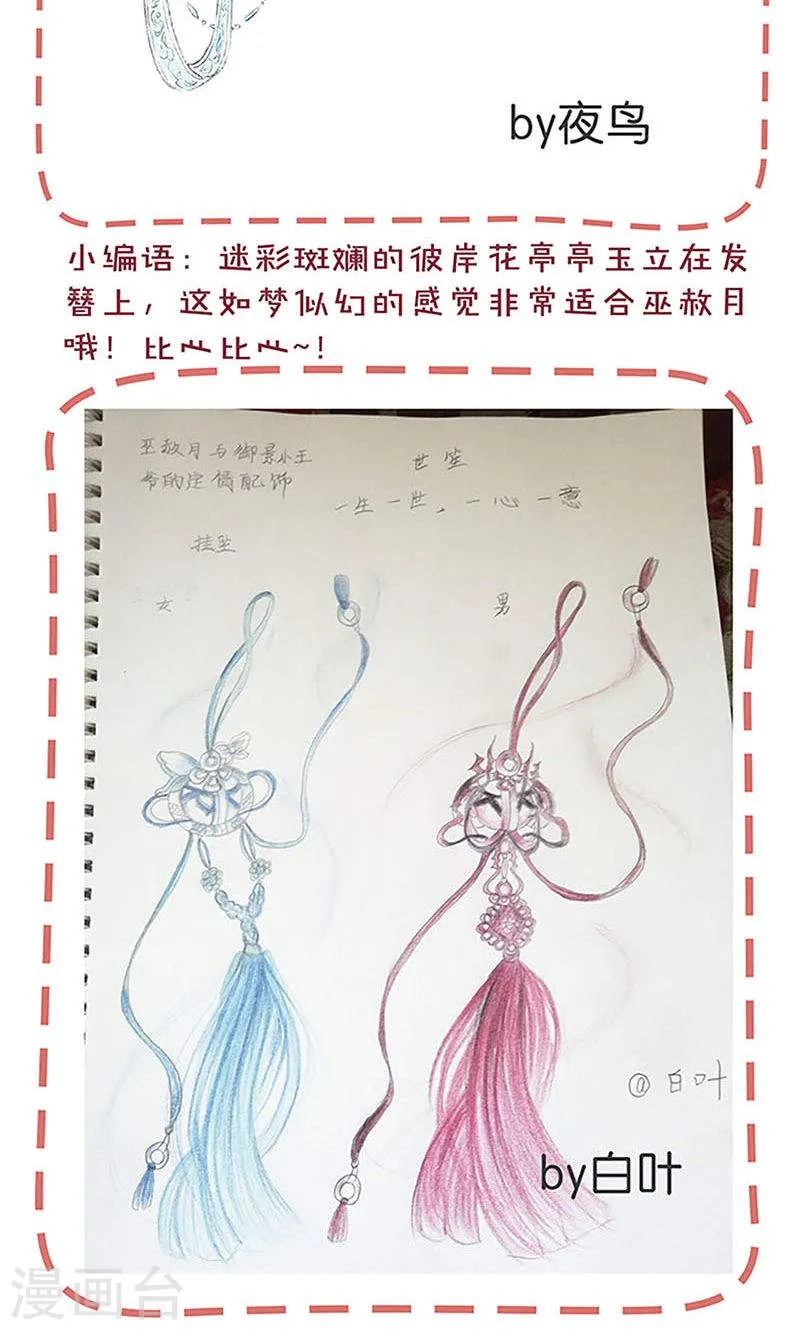 by夜鸟
小编语：迷彩斑斓的彼岸花亭亭玉立在发
簪上，这如梦似幻的感觉非常适合巫赦月
哦！比心比心~！
巫赦月与御景小王
爷的定情配饰
世笙
一生一世，一心一意
挂坠
女
男
@白叶
by白叶
漫画台